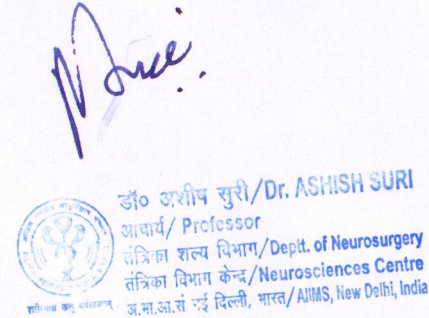 डॉ० अशीष सुरी/Dr. ASHISH SURI
आचार्य/ Professor
तंत्रिका शल्य विभाग/Deptt. of Neurosurgery
तंत्रिका विभाग केन्द्र/Neurosciences Centre
अ.भा.आ.सं नई दिल्ली, भारत/AIIMS, New Delhi, India